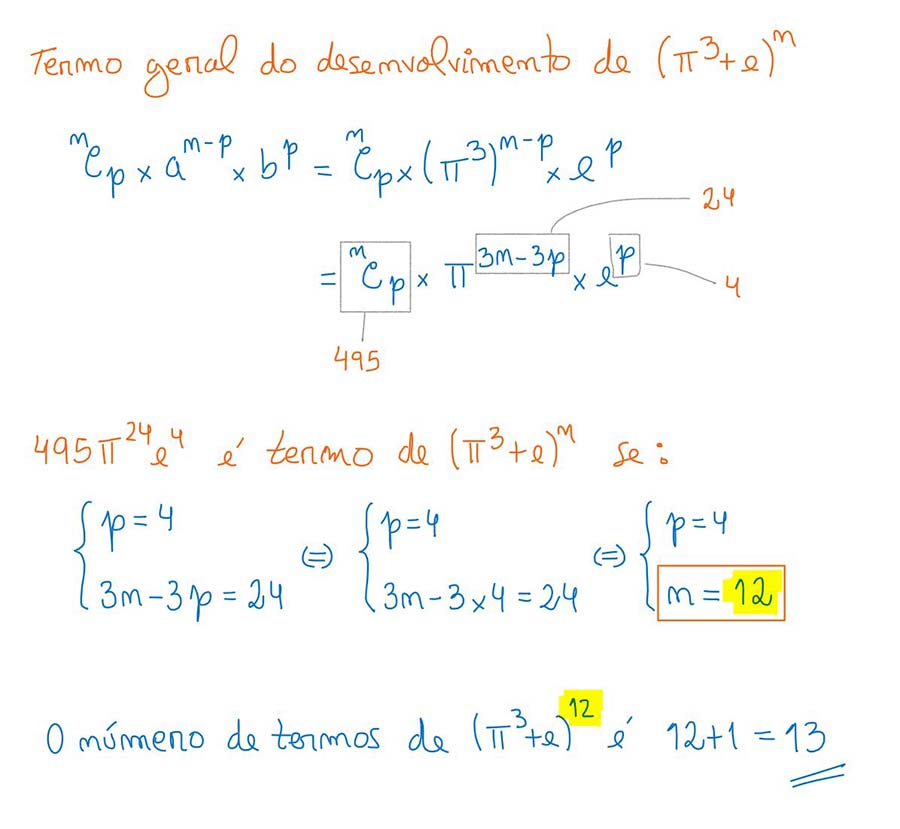 Termo geral do desenvolvimento de (π³+e)ⁿ
ⁿCp × aⁿ⁻ᵖ × bᵖ = ⁿCp × (π³)ⁿ⁻ᵖ × eᵖ
24
= ⁿCp × π³ⁿ⁻³ᵖ × eᵖ
4
495
495π²⁴e⁴ é termo de (π³+e)ⁿ se:
{ p = 4 (=) { p = 4 (=) { p = 4
3n - 3p = 24 3n - 3×4 = 24 n = 12
O número de termos de (π³+e)¹² é 12+1 = 13